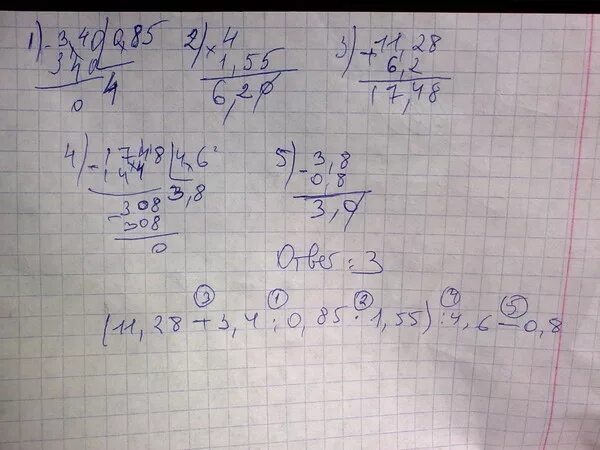 1) - 3,40 | 0,85
340 4
0
2) × 4
1,55
6,20
3) + 11,28
6,2
17,48
4) - 17,48 | 4,6
144 3,8
- 308
308
0
5) - 3,8
0,8
3,0
Ответ: 3
3 1 2 4 5
(11,28 + 3,4 : 0,85 · 1,55) : 4,6 - 0,8